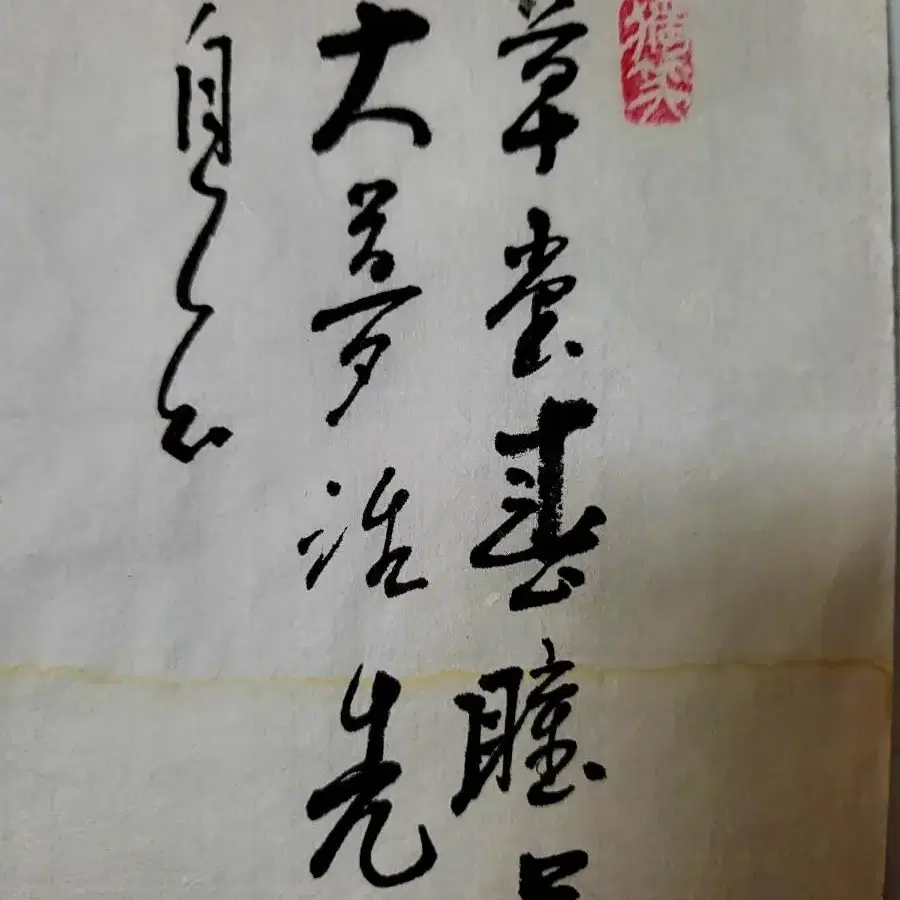 草堂春睡
大夢誰先
自